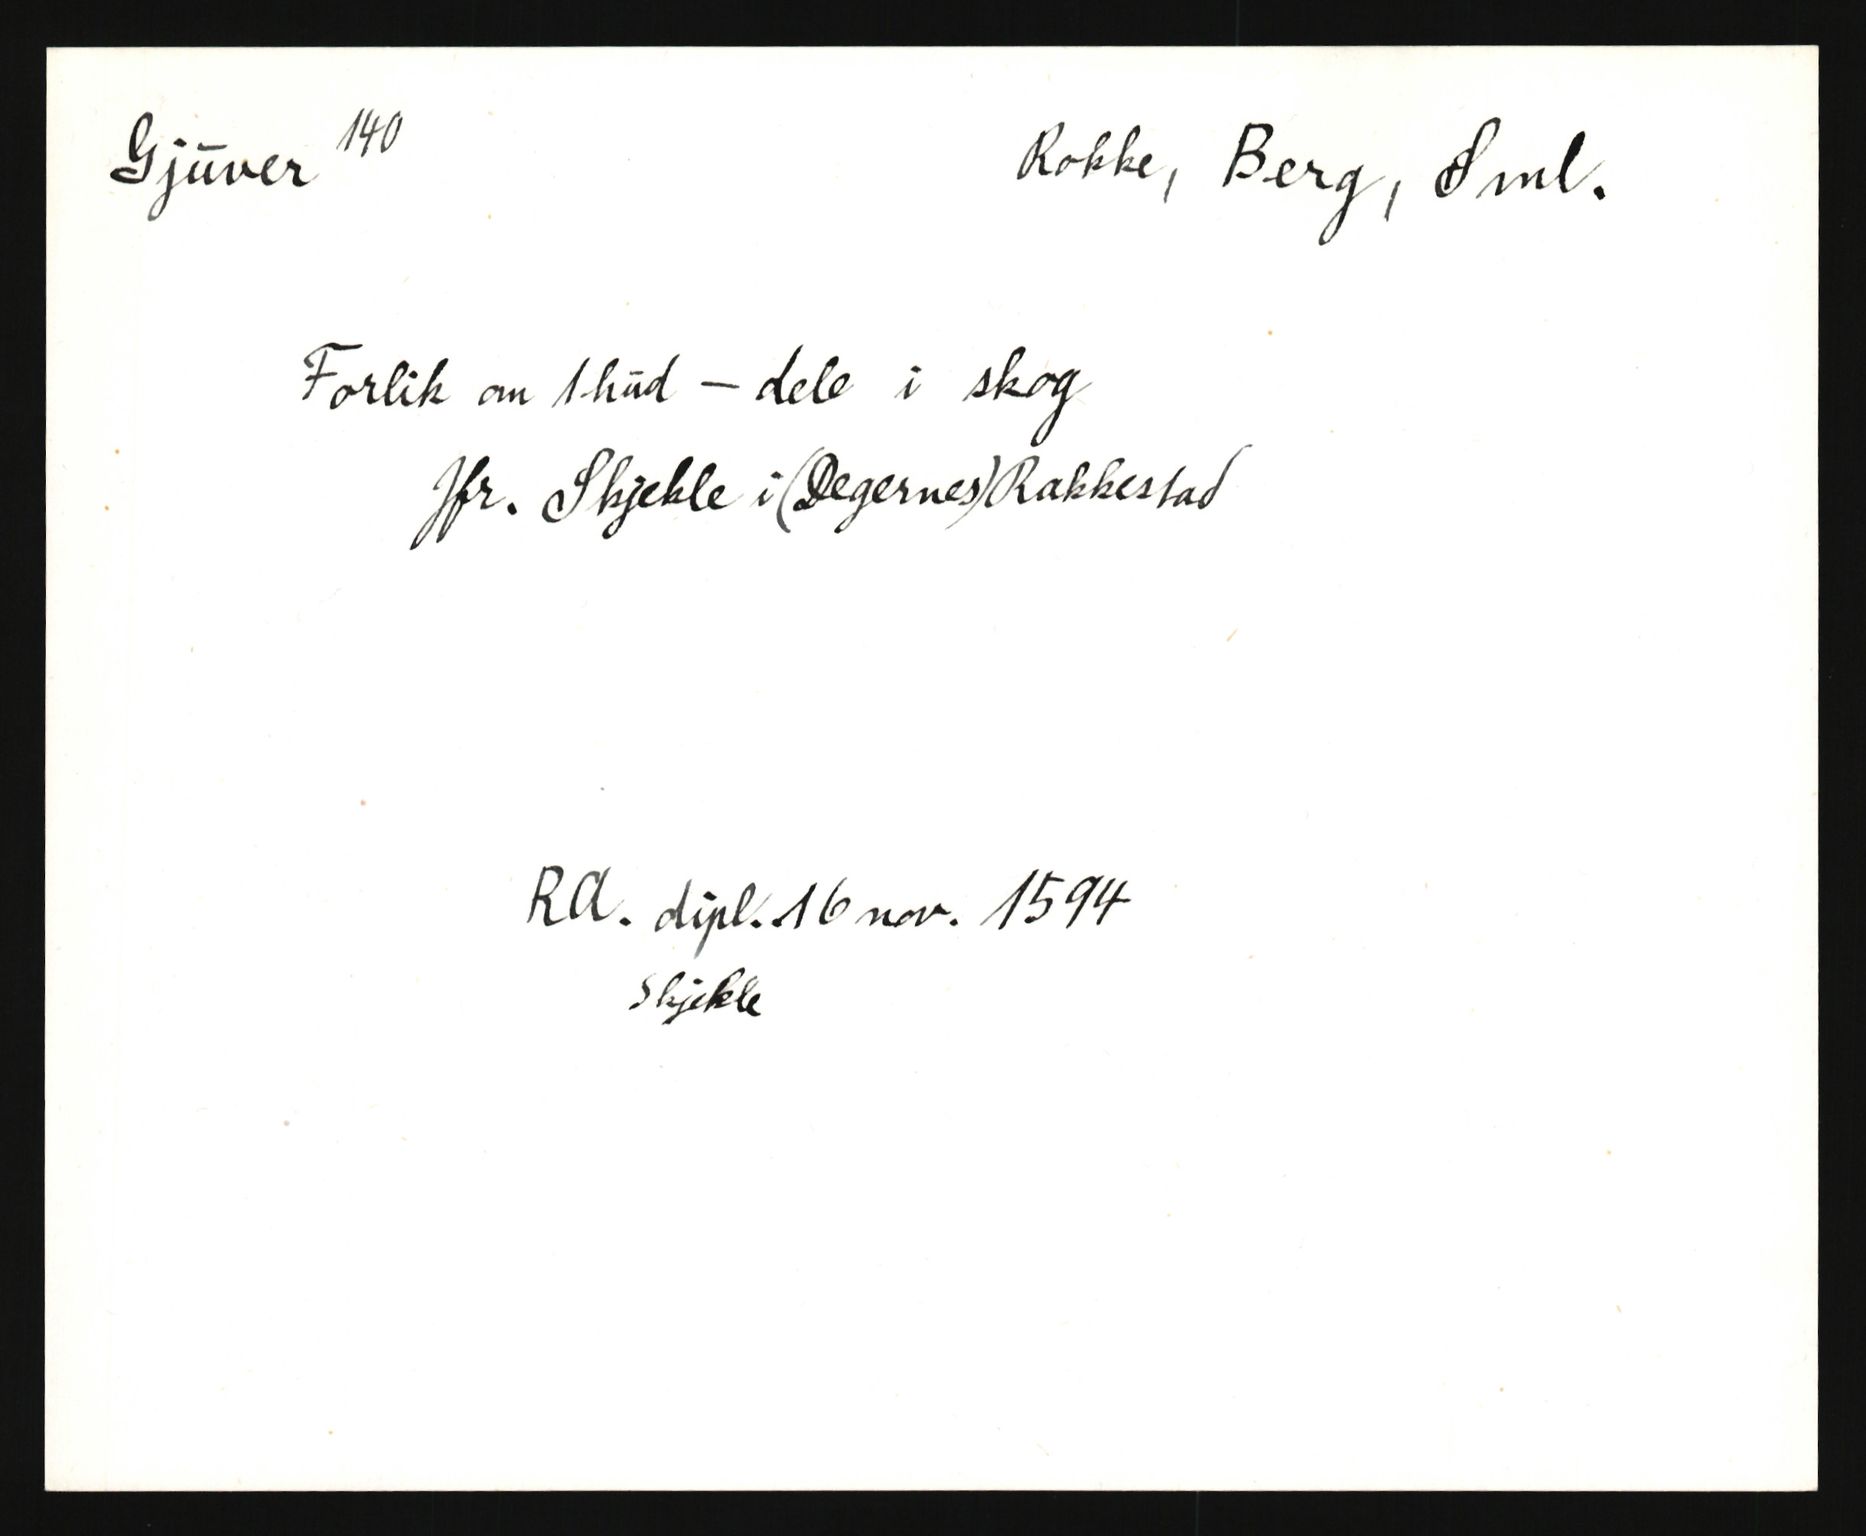 Gjūver 140 Rokke, Berg, Sml.
Forlik om 1 hūd — dele i skog
Jfr. Skjekle i (Degernes) Rakkestad
RA. dipl. 16 nov. 1594
Skjekle